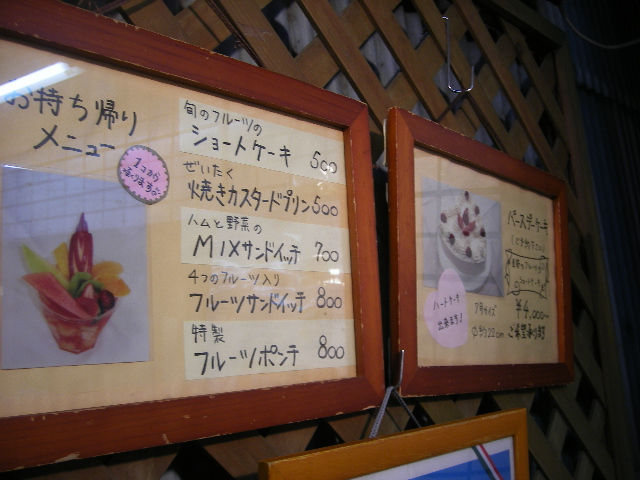 お持ち帰り
メニュー
1コから
旬のフルーツの
ショートケーキ 500
ぜいたく
焼きカスタードプリン 500
ハムと野菜の
MIXサンドイッチ 700
4つのフルーツ入り
フルーツサンドイッチ 800
特製
フルーツポンチ 800
ハートケーキ
出来ます!
7号サイズ
¥4,000